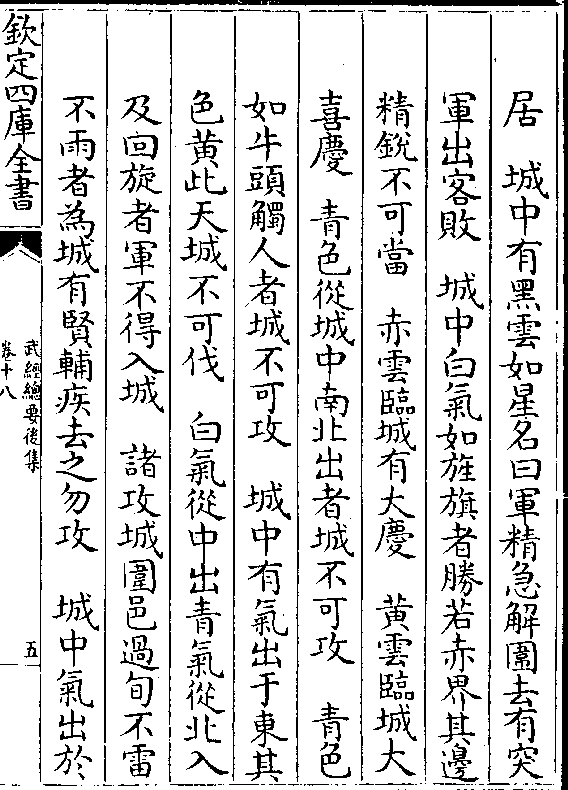 居　城中有黑雲如星名曰軍精急解圍去有突
軍出客敗　城中白氣如旌旗者勝若赤界其邊
精銳不可當　赤雲臨城有大慶　黃雲臨城大
喜慶　青色從城中南北出者城不可攻　青色
如牛頭觸人者城不可攻　城中有氣出于東其
色黃此天城不可伐　白氣從中出青氣從北入
及回旋者軍不得入城　諸攻城圍邑過旬不雷
不雨者為城有賢輔疾去之勿攻　城中氣出於
欽定四庫全書
武經總要後集
卷十八
五